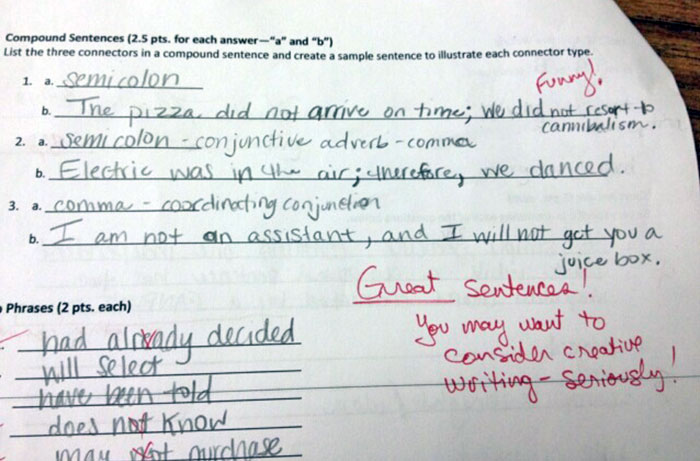 Compound Sentences (2.5 pts. for each answer—"a" and "b")
List the three connectors in a compound sentence and create a sample sentence to illustrate each connector type.
1. a. semicolon
Funny!
b. The pizza did not arrive on time; we did not resort to
cannibalism.
2. a. semicolon - conjunctive adverb - comma
b. Electric was in the air; therefore, we danced.
3. a. comma - coordinating conjunction
b. I am not an assistant, and I will not get you a
juice box.
Great sentences!
You may want to
consider creative
writing - seriously!
Phrases (2 pts. each)
had already decided
will select
have been told
does not know
may not purchase